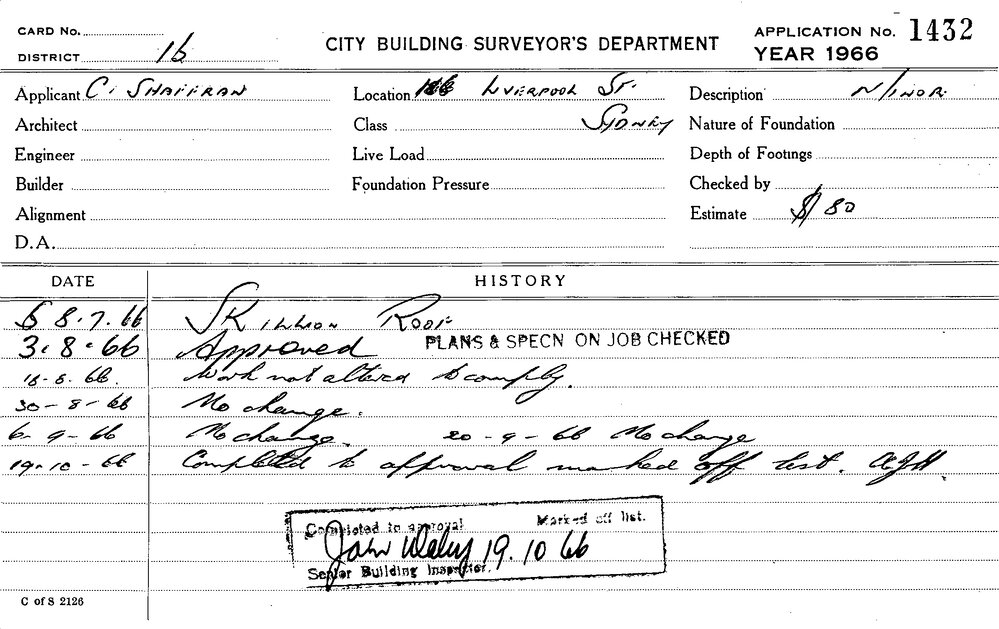 CARD No.
DISTRICT 16
CITY BUILDING SURVEYOR'S DEPARTMENT
APPLICATION No. 1432
YEAR 1966
Applicant C. SHAFFRAN
Location LIVERPOOL ST.
Description MINOR
Architect
Class SYDNEY
Nature of Foundation
Engineer
Live Load
Depth of Footings
Builder
Foundation Pressure
Checked by
Alignment
Estimate $80
D.A.
DATE HISTORY
8.7.66 SKILLION ROOF
3.8.66 Approved PLANS & SPECN ON JOB CHECKED
8.66. Work not altered to comply.
30-8-66 No change.
6-9-66 No change. 20-9-66 No change
19-10-66 Completed to approval marked off list.
Completed to approval Marked off list.
John 19.10 66
Senior Building Inspector.
C of S 2126